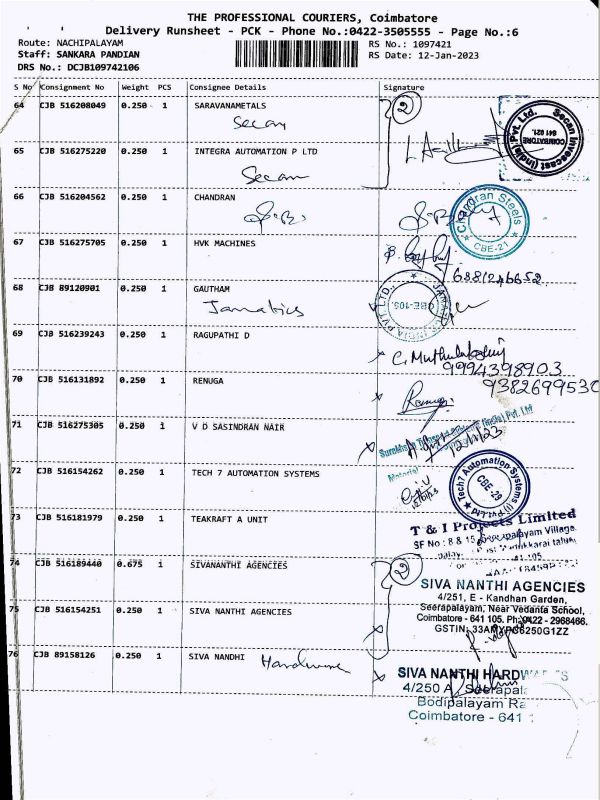 THE PROFESSIONAL COURIERS, Coimbatore
Delivery Runsheet - PCK - Phone No.:0422-3505555 - Page No.:6
Route: NACHIPALAYAM
RS No.: 1097421
Staff: SANKARA PANDIAN
RS Date: 12-Jan-2023
DRS No.: DCJB109742106
S No Consignment No Weight PCS Consignee Details Signature
64 CJB 516208049 0.250 1 SARAVANAMETALS
Secan
2
Secan Invescast (India) Pvt. Ltd. COIMBATORE 641 021.
65 CJB 516275220 0.250 1 INTEGRA AUTOMATION P LTD
Secan
66 CJB 516204562 0.250 1 CHANDRAN
Chandran Steels CBE-21
67 CJB 516275705 0.250 1 HVK MACHINES
6381246652
68 CJB 89120901 0.250 1 GAUTHAM
Jamatics
JAMATICS INDIA PVT LTD. CBE-105.
69 CJB 516239243 0.250 1 RAGUPATHI D
C. Muthulakshmi
9994398903
9382699530
70 CJB 516131892 0.250 1 RENUGA
Renuga
71 CJB 516275305 0.250 1 V D SASINDRAN NAIR
(India) Pvt. Ltd
12/1/23
Material
72 CJB 516154262 0.250 1 TECH 7 AUTOMATION SYSTEMS
Tech7 Automation Systems (I) Pvt Ltd CBE-29
73 CJB 516181979 0.250 1 TEAKRAFT A UNIT
T & I Projects Limited
SF No : 8 & 15 Village
74 CJB 516189440 0.675 1 SIVANANTHI AGENCIES
2
SIVA NANTHI AGENCIES
4/251, E - Kandhan Garden,
Seerapalayam, Near Vedanta School,
Coimbatore - 641 105. Ph: 0422 - 2968466.
GSTIN: 6250G1ZZ
75 CJB 516154251 0.250 1 SIVA NANTHI AGENCIES
76 CJB 89158126 0.250 1 SIVA NANDHI Hardware
SIVA NANTHI HARDWARES
4/250 A, Seerapal
Bodipalayam Ra
Coimbatore - 641 1